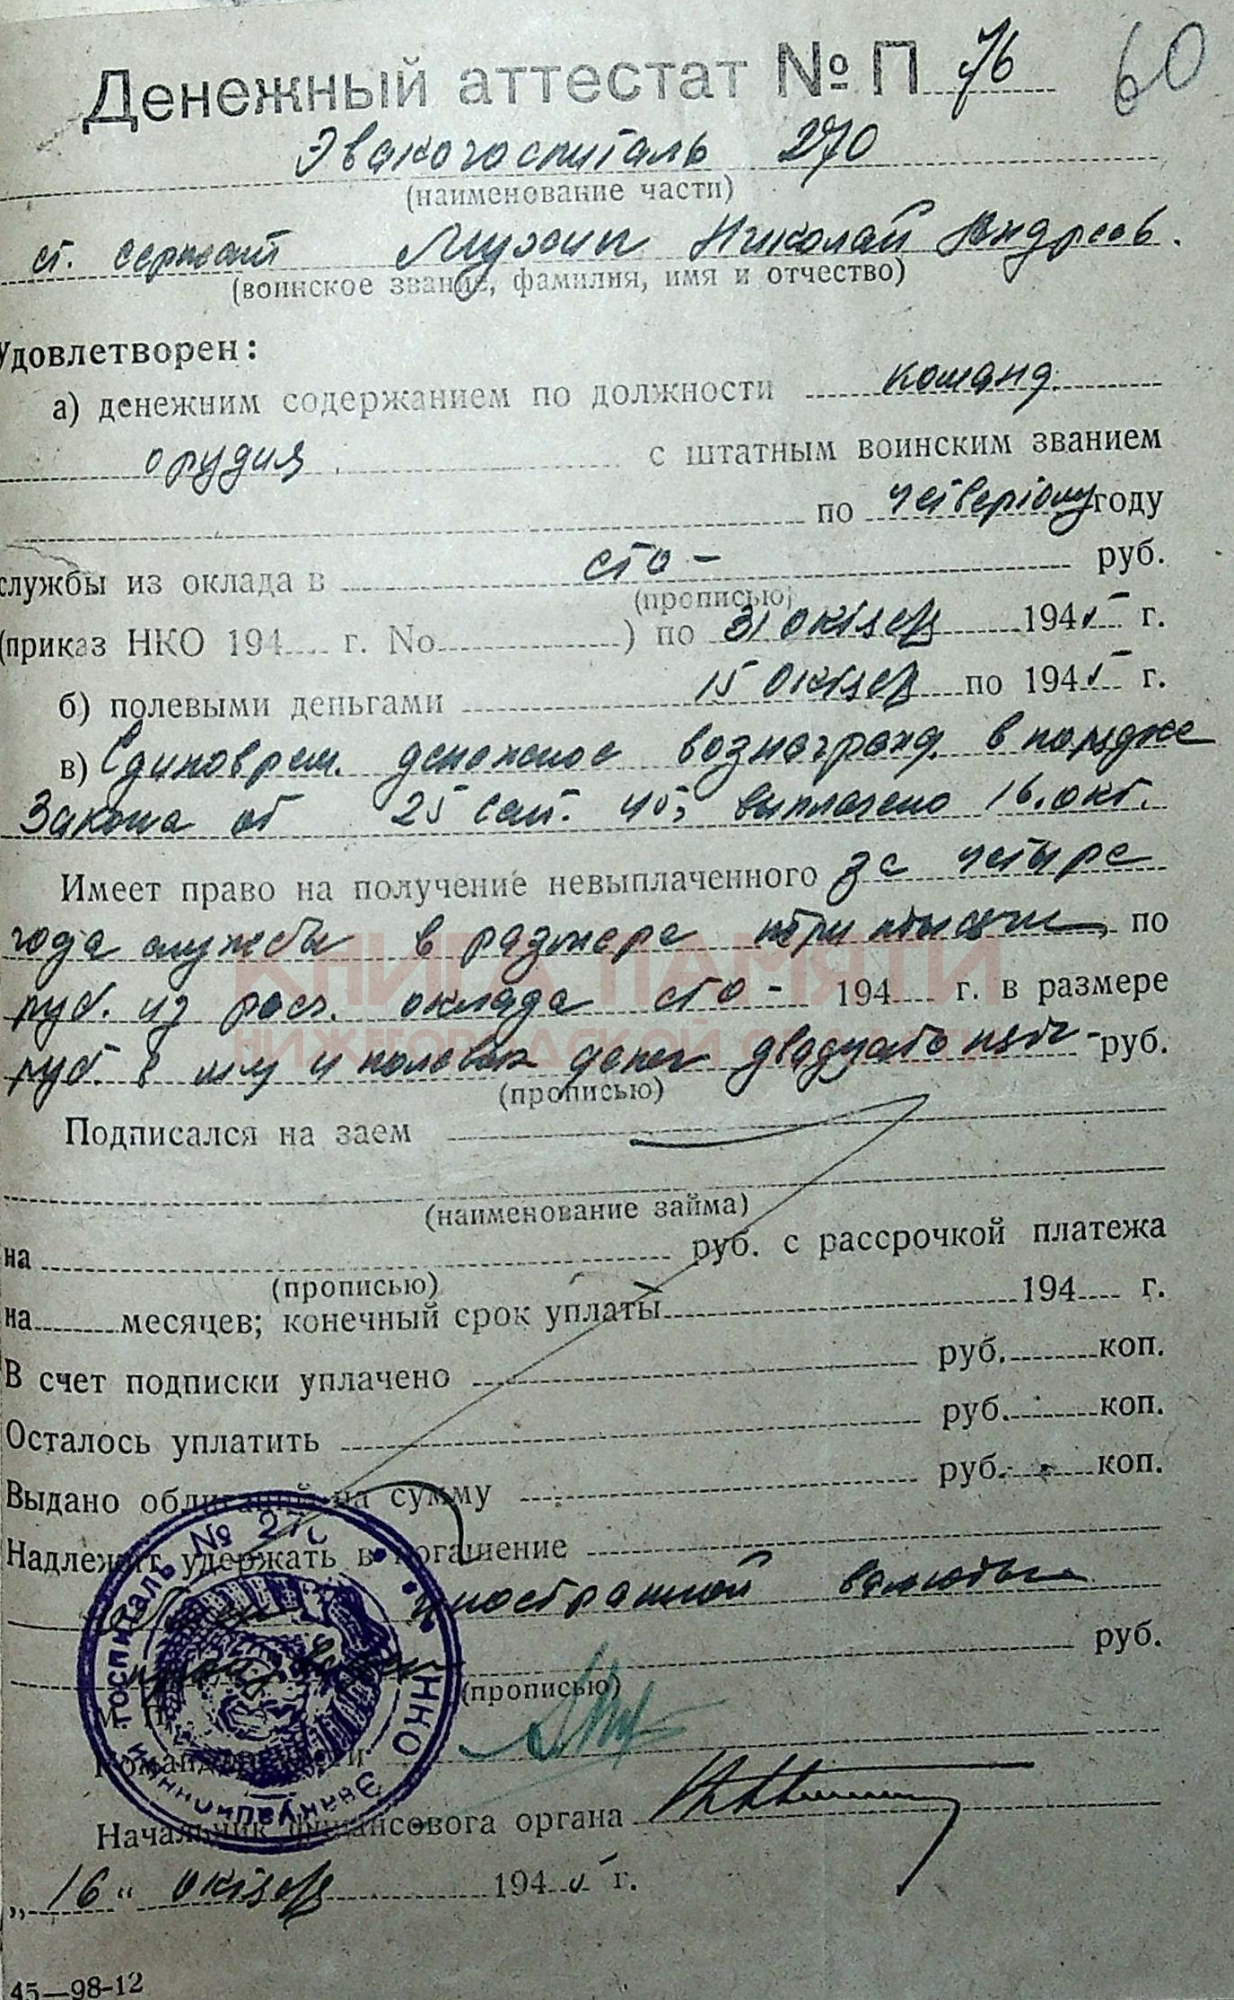 60
Денежный аттестат № П 76
Эвакогоспиталь 270
(наименование части)
ст. сержант Мухин Николай Андреев.
(воинское звание, фамилия, имя и отчество)
Удовлетворен:
а) денежним содержанием по должности команд.
орудия с штатным воинским званием
по четвертому году
службы из оклада в сто - руб.
(прописью)
(приказ НКО 194 г. No ) по 31 октября 1945 г.
б) полевыми деньгами 15 октября по 1945 г.
в) Единоврем. денежное вознагражд. в порядке
Закона от 25 сент. 45, выплачено 16. окт.
Имеет право на получение невыплаченного за четыре
года службы в размере три тысячи, по
руб. из расч. оклада сто - 194 г. в размере
руб. в м-ц и полевых денег двадцать пять - руб.
(прописью)
КНИГА ПАМЯТИ
НИЖЕГОРОДСКОЙ ОБЛАСТИ
Подписался на заем
(наименование займа)
на руб. с рассрочкой платежа
(прописью)
на месяцев; конечный срок уплаты 194 г.
В счет подписки уплачено руб. коп.
Осталось уплатить руб. коп.
Выдано облигаций на сумму руб. коп.
Надлежит удержать в погашение
иностранной валюты
руб.
(прописью)
М. П.
Командир части
Начальник финансовога органа
„16“ октября 1945 г.
Эвакуационный госпиталь № 270 НКО
45—98-12